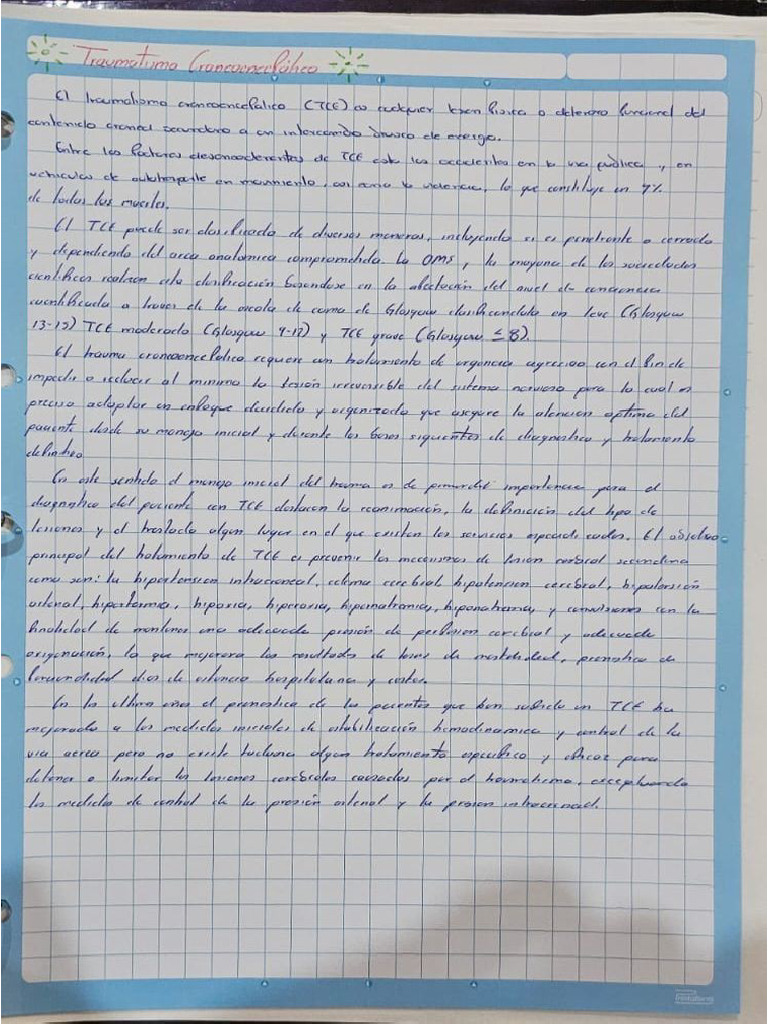 Traumatismo Craneoencefálico
El traumatismo craneoencefalico (TCE) es cualquier lesion fisica o deterioro funcional del
contenido craneal secundario a un intercambio brusco de energia.
Entre los factores desencadenantes de TCE esta los accidentes en la via publica, y en
vehiculos de autotransporte en movimiento, asi como la violencia, lo que constituye un 7%
de todas las muertes.
El TCE puede ser clasificado de diversas maneras, incluyendo si es penetrante o cerrado
y dependiendo del area anatomica comprometida la OMS, y la mayoria de las sociedades
cientificas realizan esta clasificación basandose en la afectación del nivel de conciencia
cuantificada a traves de la escala de coma de Glasgow clasificandola en leve (Glasgow
13-15) TCE moderado (Glasgow 9-12) y TCE grave (Glasgow ≤8).
El trauma craneoencefalico requiere un tratamiento de urgencia agresivo con el fin de
impedir o reducir al minimo la lesión irreversible del sistema nervioso para lo cual es
preciso adoptar un enfoque decidido y organizado que asegure la atencion optima del
paciente desde su manejo inicial y durante las fases siguientes de diagnostico y tratamiento
definitivo.
En este sentido el manejo inicial del trauma es de primordial importancia para el
diagnostico del paciente con TCE destacan la reanimación, la definición del tipo de
lesiones y el traslado algun lugar en el que existan los servicios especializados. El objetivo
principal del tratamiento de TCE es prevenir los mecanismos de lesion cerebral secundaria
como son: la hipertension intracraneal, edema cerebral hipotension cerebral, hipotensión
arterial, hipertermia, hipoxia, hiperoxia, hipernatremia, hiponatremia, y convulsiones con la
finalidad de mantener una adecuada presión de perfusion cerebral y adecuada
oxigenación, lo que mejorara los resultados de tasas de mortalidad, pronostico de
dias de estancia hospitalaria y costos.
En los ultimos años el pronostico de los pacientes que han sufrido un TCE ha
mejorado a las medidas iniciales de estabilización hemodinamica y control de la
via aerea pero no existe todavia algun tratamiento especifico y eficaz para
detener o limitar las lesiones cerebrales causadas por el traumatismo, exceptuando
las medidas de control de la presión arterial y la presion intracraneal.